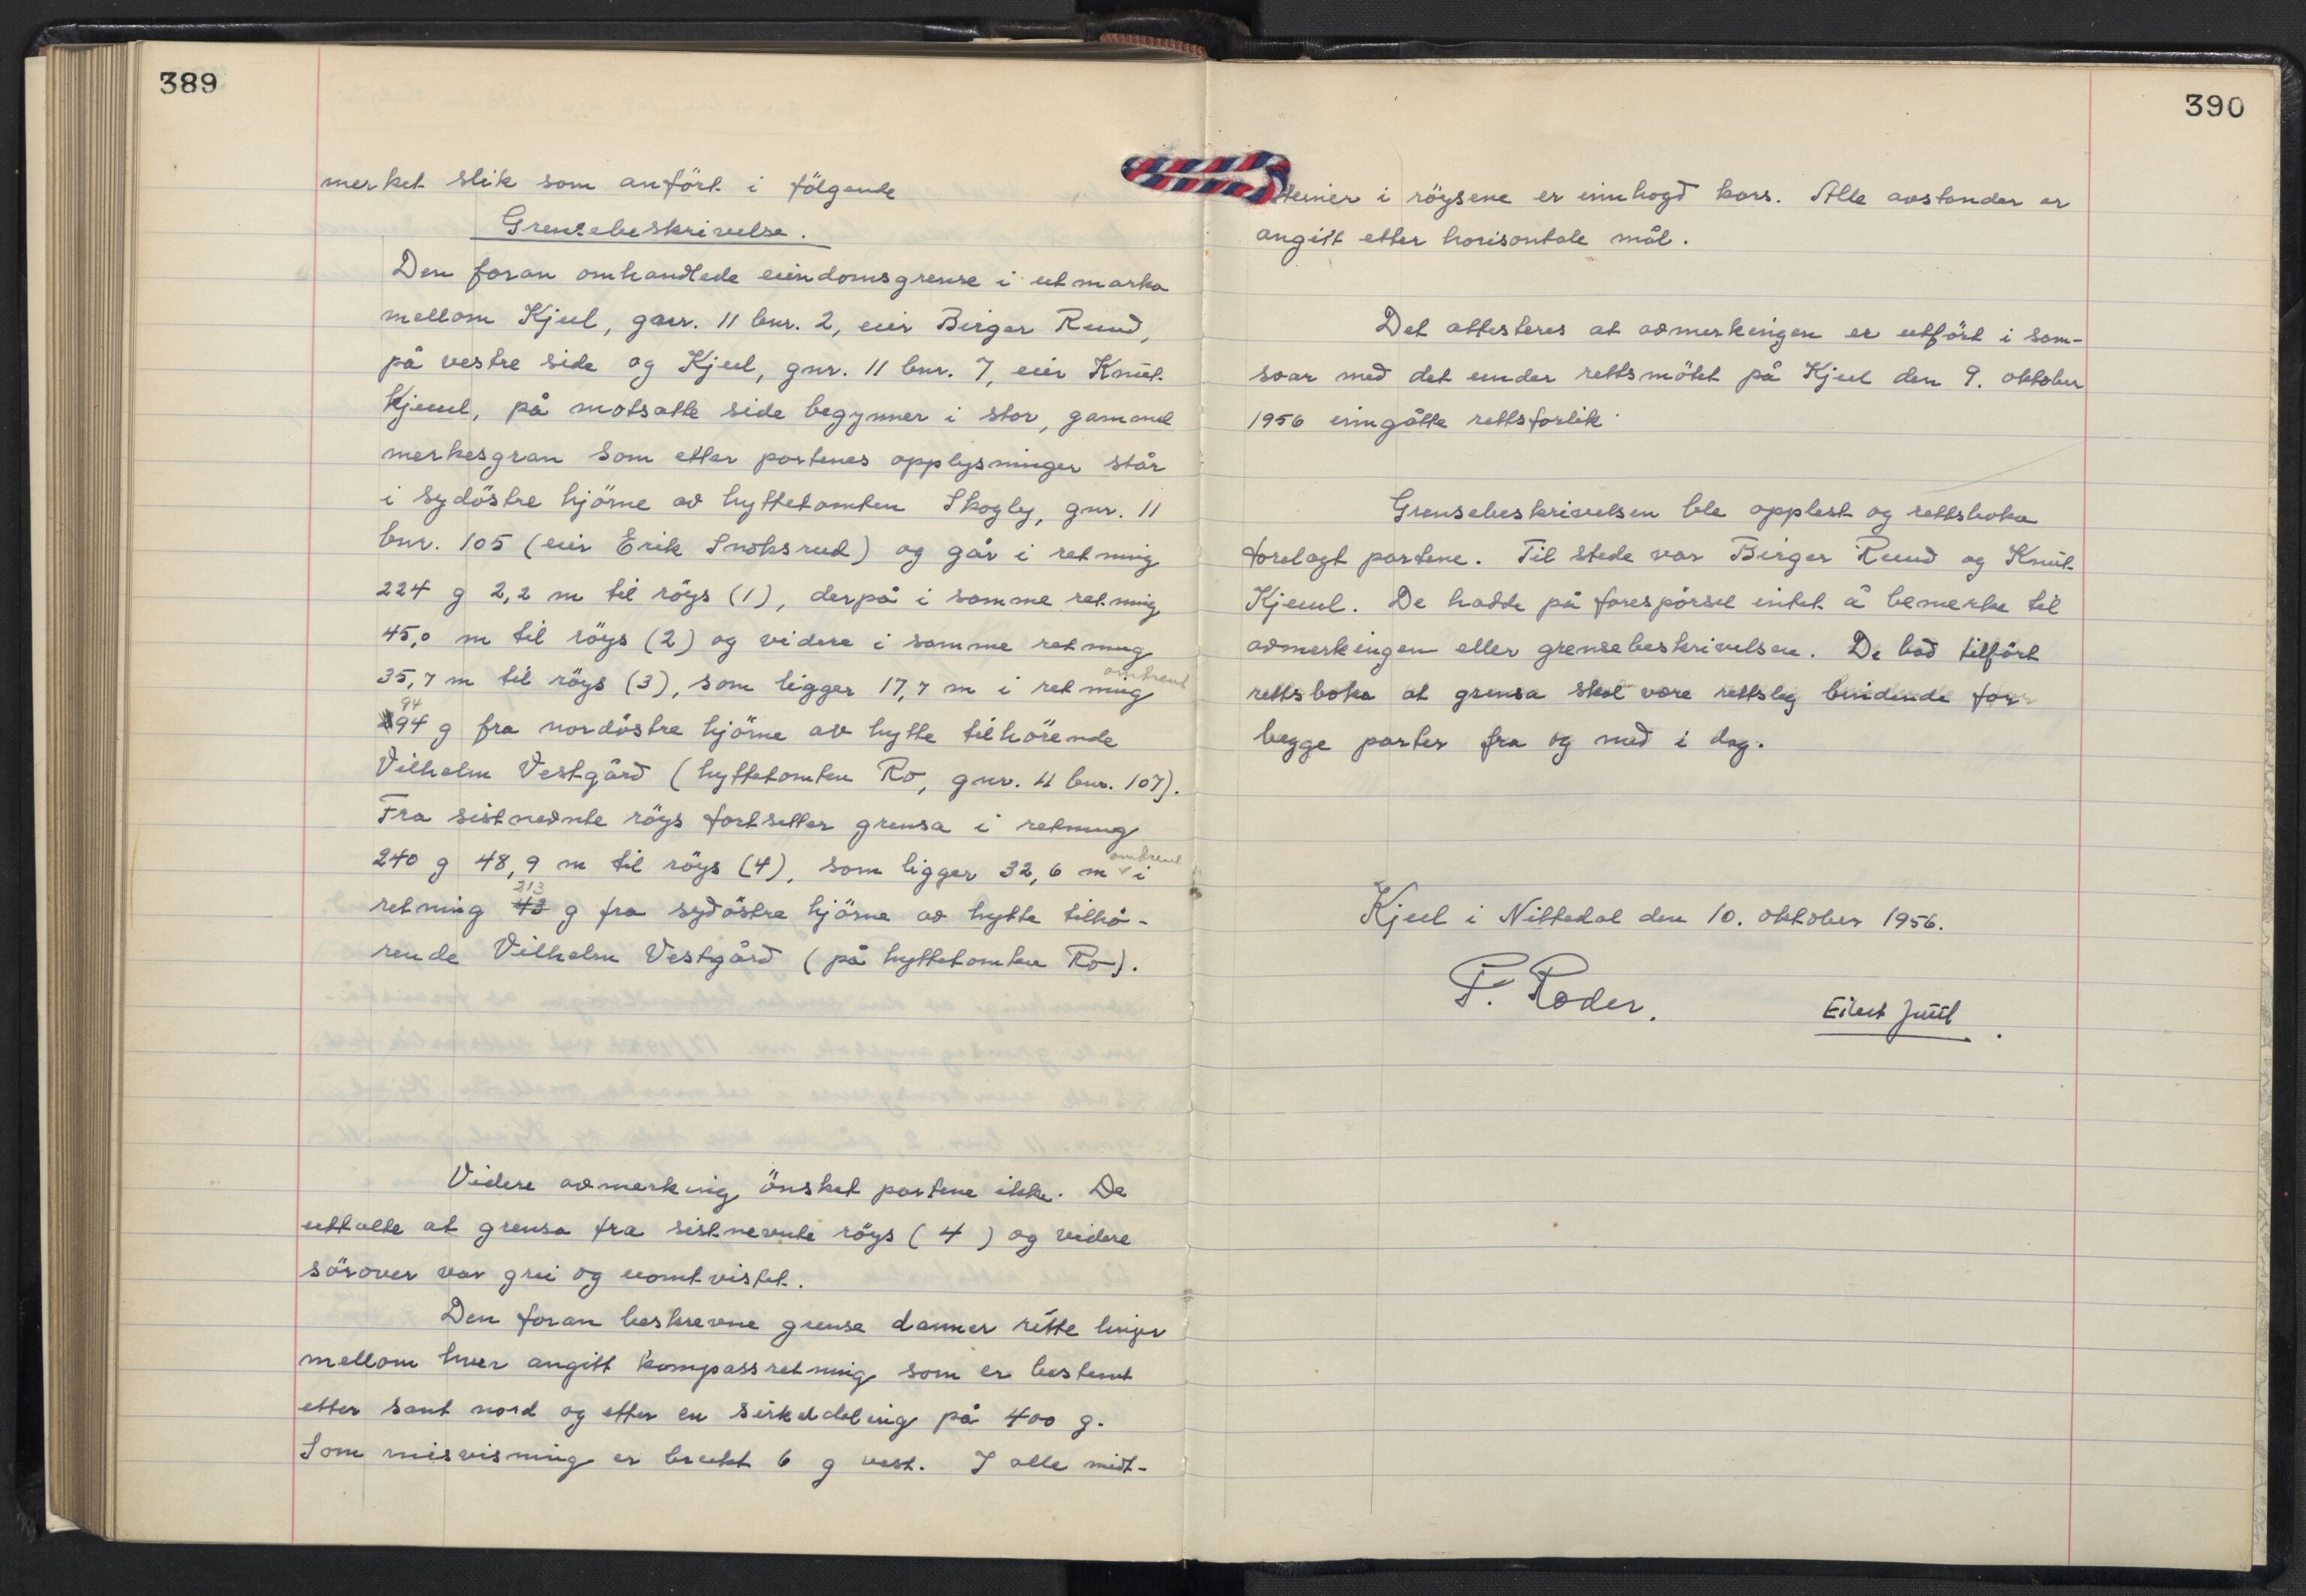 389
merket slik som anfört i fölgende
Grensebeskrivelse.
Den foran omhandlede eiendomsgrense i utmarka
mellom Kjul, gnr. 11 bnr. 2, eier Birger Ruud,
på vestre side og Kjul, gnr. 11 bnr. 7, eier Knut
Kjuul, på motsatte side begynner i stor, gammel
merkesgran som etter partenes opplysninger står
i sydöstre hjörne av hyttetomten Skogly, gnr. 11
bnr. 105 (eier Erik Snoksrud) og går i retning
224 g 2,2 m til röys (1), derpå i samme retning
45,0 m til röys (2) og videre i samme retning
omtrent
35,7 m til röys (3), som ligger 17,7 m i retning
94
94 g fra nordöstre hjörne av hytte tilhörende
Vilhelm Vestgård (hyttetomten Ro, gnr. 11 bnr. 107).
Fra sistnevnte röys fortsetter grensa i retning
omtrent
240 g 48,9 m til röys (4), som ligger 32,6 m i
213
retning 43 g fra sydöstre hjörne av hytte tilhö-
rende Vilhelm Vestgård (på hyttetomten Ro).
Videre avmerking önsket partene ikke. De
uttalte at grensa fra sistnevnte röys (4) og videre
sörover var grei og uomtvistet.
Den foran beskrevne grense danner rette linjer
mellom hver angitt kompassretning som er bestemt
etter sant nord og etter en sirkeldeling på 400 g.
Som misvisning er brukt 6 g vest. I alle midt-
390
steiner i röysene er innhogd kors. Alle avstander er
angitt etter horisontale mål.
Det attesteres at avmerkingen er utfört i sam-
svar med det under rettsmötet på Kjul den 9. oktober
1956 inngåtte rettsforlik.
Grensebeskrivelsen ble opplest og rettsboka
forelagt partene. Til stede var Birger Ruud og Knut
Kjuul. De hadde på forespörsel intet å bemerke til
avmerkingen eller grensebeskrivelsen. De bad tilfört
rettsboka at grensa skal være rettslig bindende for
begge parter fra og med i dag.
Kjul i Nittedal den 10. oktober 1956.
F. Roder.
Eilert Juul.